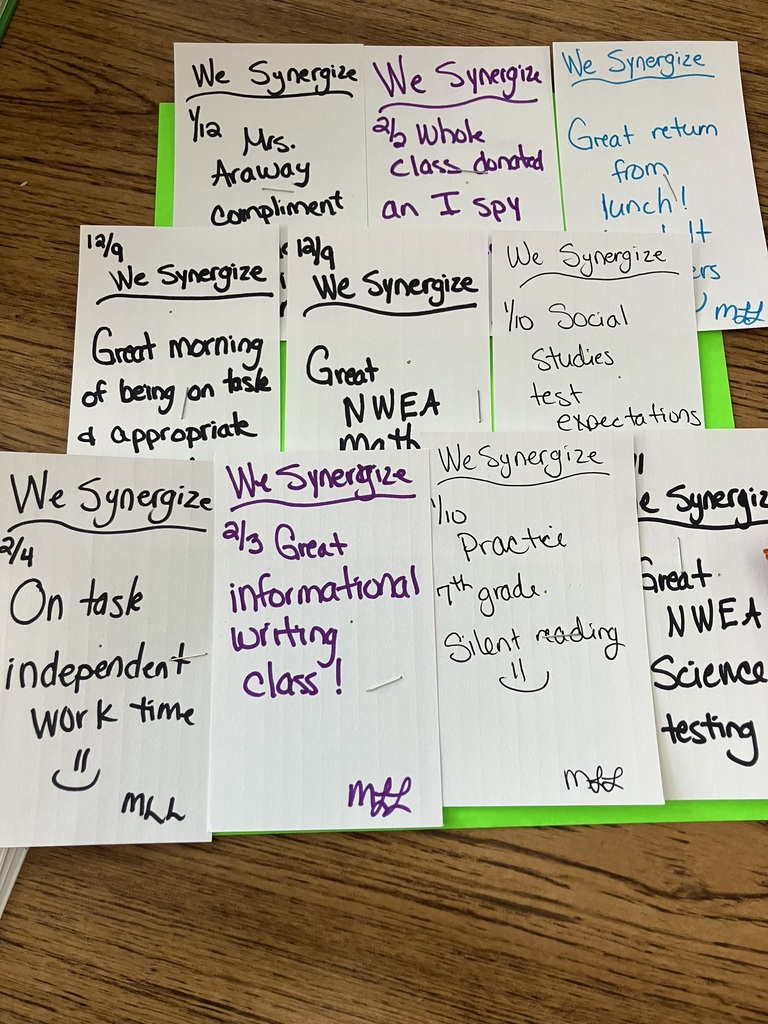 We Synergize
1/12 Mrs.
Araway
compliment
We Synergize
2/2 Whole
class donated
an I spy
We Synergize
Great return
from
lunch!
MLL
12/9
We Synergize
Great morning
of being on task
& appropriate
12/9
We Synergize
Great
NWEA
math
We Synergize
1/10 Social
Studies
test
expectations
We Synergize
2/4
On task
independent
work time
MLL
We Synergize
2/3 Great
informational
writing
class!
MLL
We Synergize
1/10
Practice
7th grade
Silent reading
MLL
e Synergiz
Great
NWEA
Science
testing